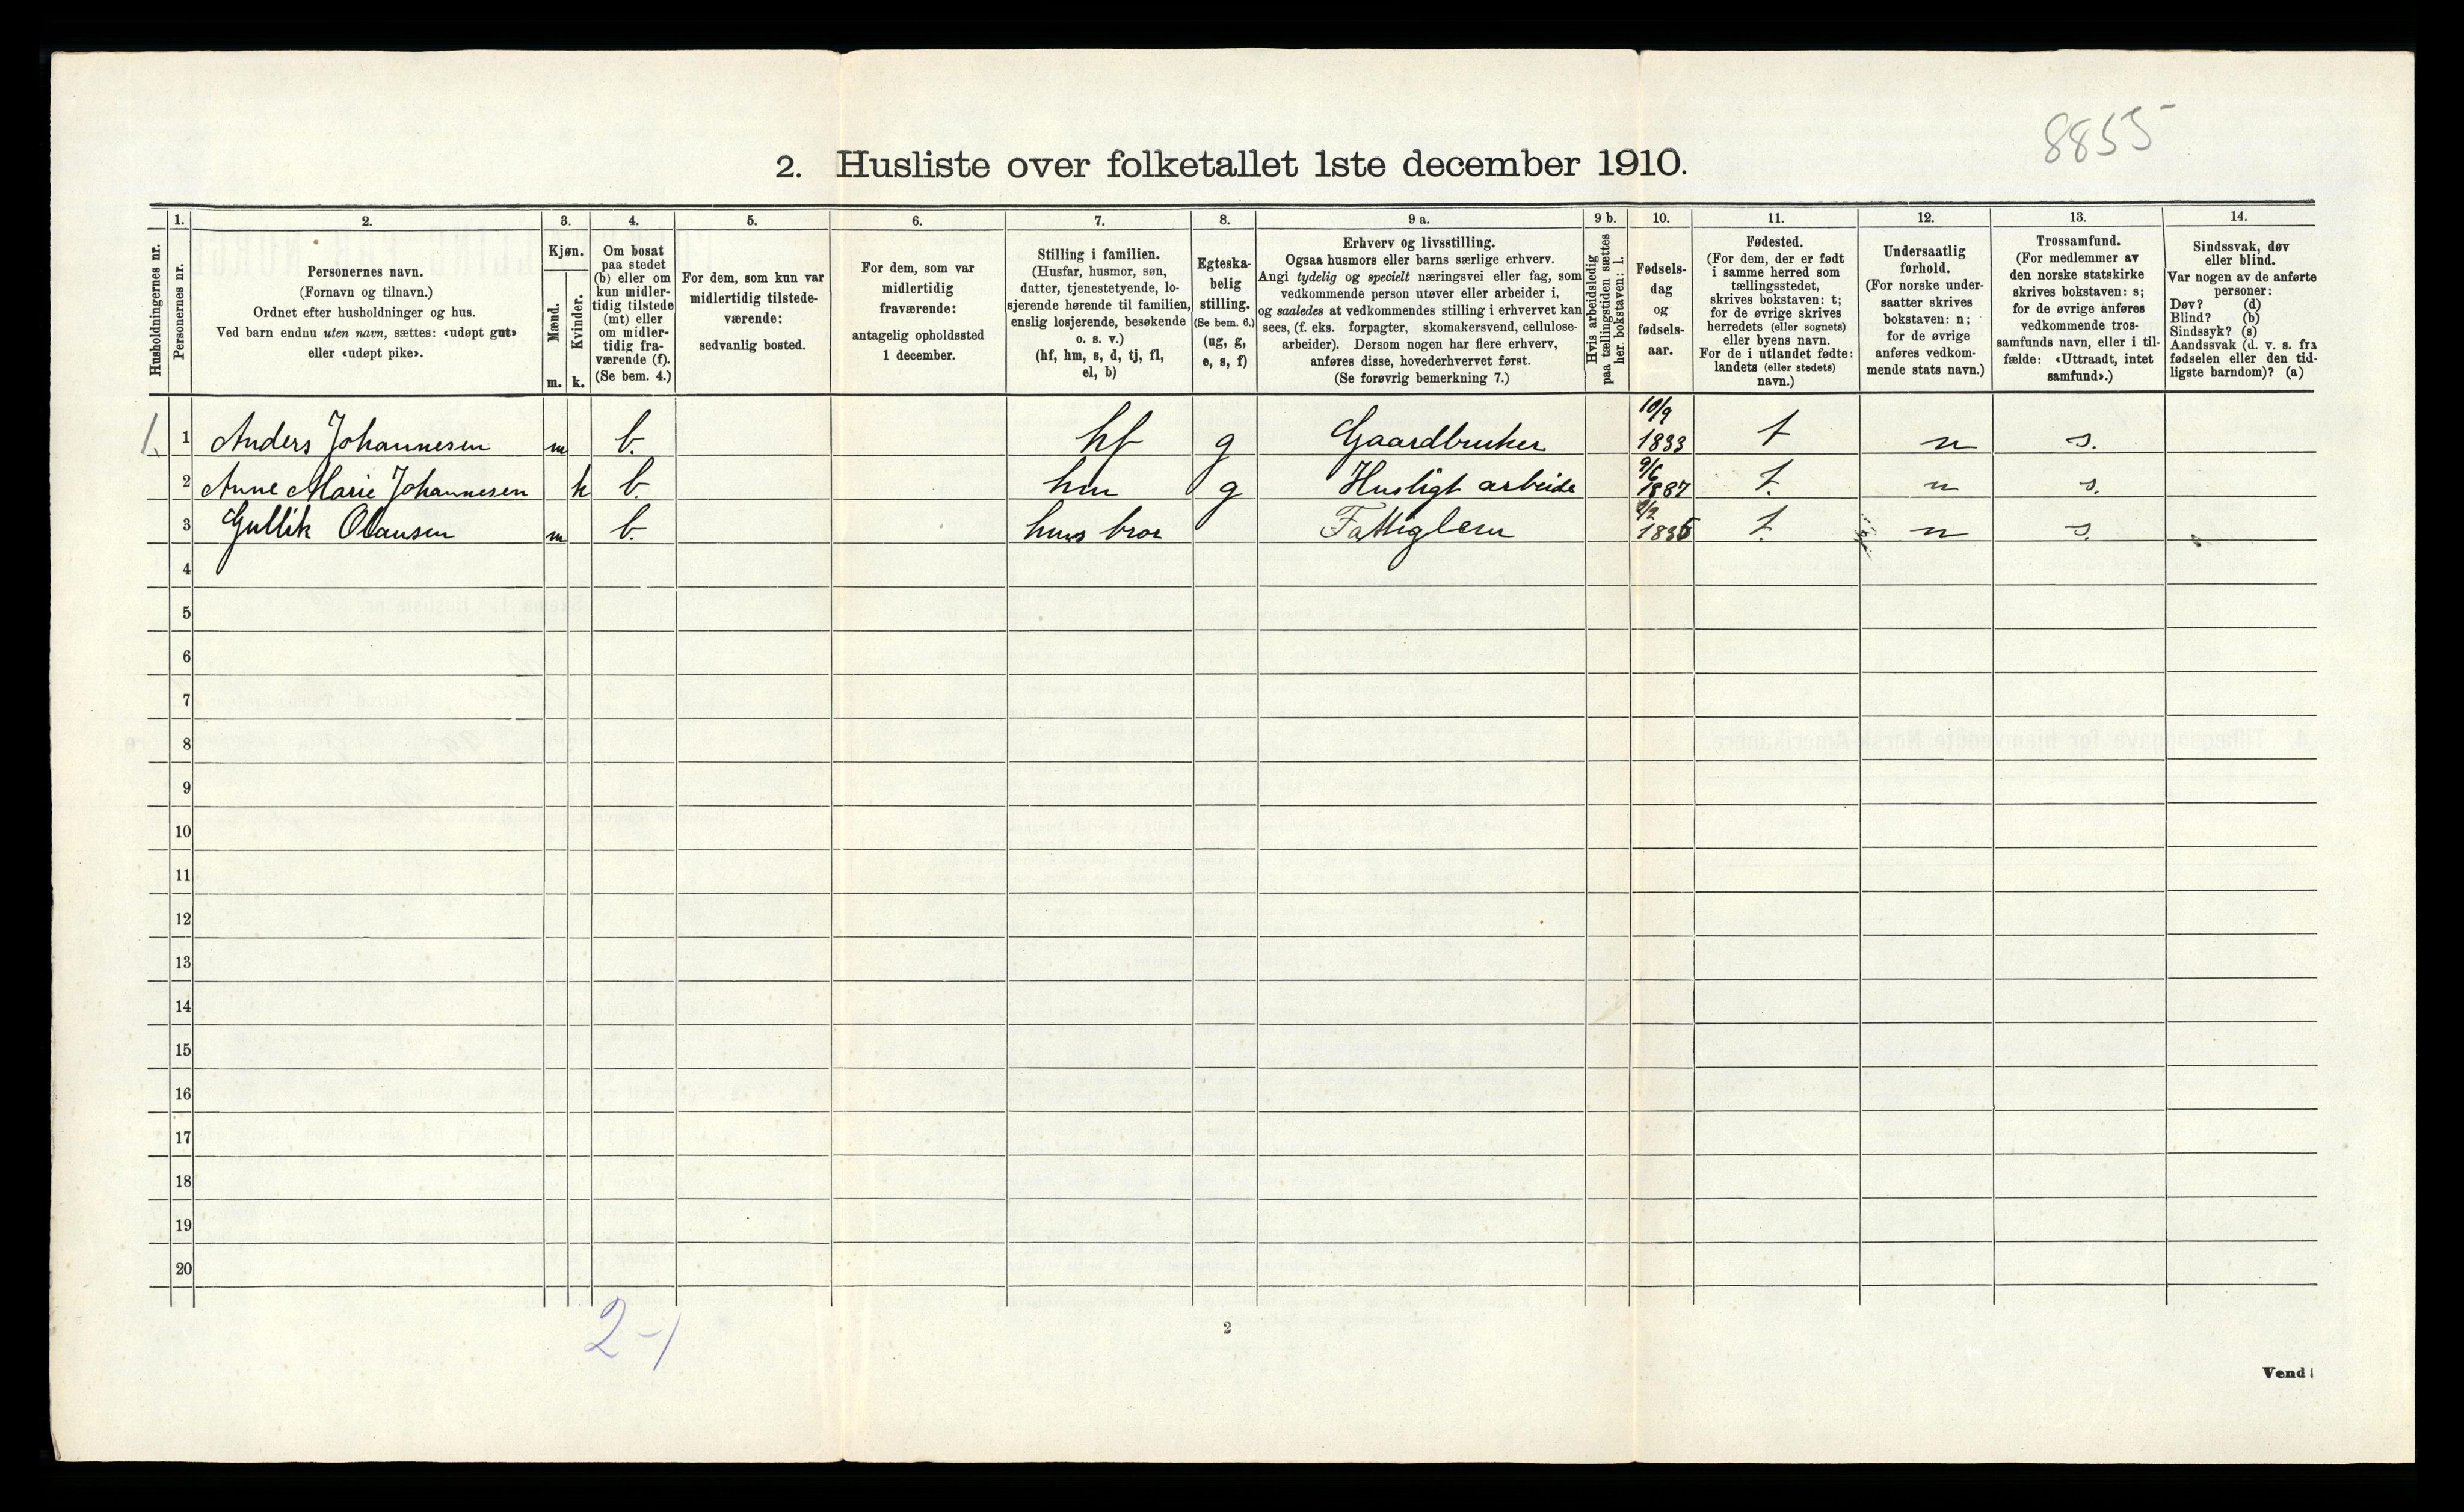 8855
2. Husliste over folketallet 1ste december 1910.
Husholdningernes nr.
1.
Personernes nr.
2.
Personernes navn.
(Fornavn og tilnavn.)
Ordnet efter husholdninger og hus.
Ved barn endnu uten navn, sættes: «udøpt gut»
eller «udøpt pike».
3.
Kjøn.
Mænd.
Kvinder.
m. k.
4.
Om bosat
paa stedet
(b) eller om
kun midler-
tidig tilstede
(mt) eller
om midler-
tidig fra-
værende (f).
(Se bem. 4.)
5.
For dem, som kun var
midlertidig tilstede-
værende:
sedvanlig bosted.
6.
For dem, som var
midlertidig
fraværende:
antagelig opholdssted
1 december.
7.
Stilling i familien.
(Husfar, husmor, søn,
datter, tjenestetyende, lo-
sjerende hørende til familien,
enslig losjerende, besøkende
o. s. v.)
(hf, hm, s, d, tj, fl,
el, b)
8.
Egteska-
belig
stilling.
(Se bem. 6.)
(ug, g,
e, s, f)
9 a.
Erhverv og livsstilling.
Ogsaa husmors eller barns særlige erhverv.
Angi tydelig og specielt næringsvei eller fag, som
vedkommende person utøver eller arbeider i,
og saaledes at vedkommendes stilling i erhvervet kan
sees, (f. eks. forpagter, skomakersvend, cellulose-
arbeider). Dersom nogen har flere erhverv,
anføres disse, hovederhvervet først.
(Se forøvrig bemerkning 7.)
9 b.
Hvis arbeidsledig
paa tællingstiden sættes
her bokstaven: l.
10.
Fødsels-
dag
og
fødsels-
aar.
11.
Fødested.
(For dem, der er født
i samme herred som
tællingsstedet,
skrives bokstaven: t;
for de øvrige skrives
herredets (eller sognets)
eller byens navn.
For de i utlandet fødte:
landets (eller stedets)
navn.)
12.
Undersaatlig
forhold.
(For norske under-
saatter skrives
bokstaven: n;
for de øvrige
anføres vedkom-
mende stats navn.)
13.
Trossamfund.
(For medlemmer av
den norske statskirke
skrives bokstaven: s;
for de øvrige anføres
vedkommende tros-
samfunds navn, eller i til-
fælde: «Uttraadt, intet
samfund».)
14.
Sindssvak, døv
eller blind.
Var nogen av de anførte
personer:
Døv? (d)
Blind? (b)
Sindssyk? (s)
Aandssvak (d. v. s. fra
fødselen eller den tid-
ligste barndom)? (a)
1. 1 Anders Johannesen m b. hf g Gaardbruker 10/9 1833 t n s.
2 Anne Marie Johannesen k b. hm g Husligt arbeide 9/6 1887 t. n s.
3 Gullik Olausen m b. hms bror Fattiglem 1836 t. n s.
4
5
6
7
8
9
10
11
12
13
14
15
16
17
18
19
20
2-1
2
Vend!